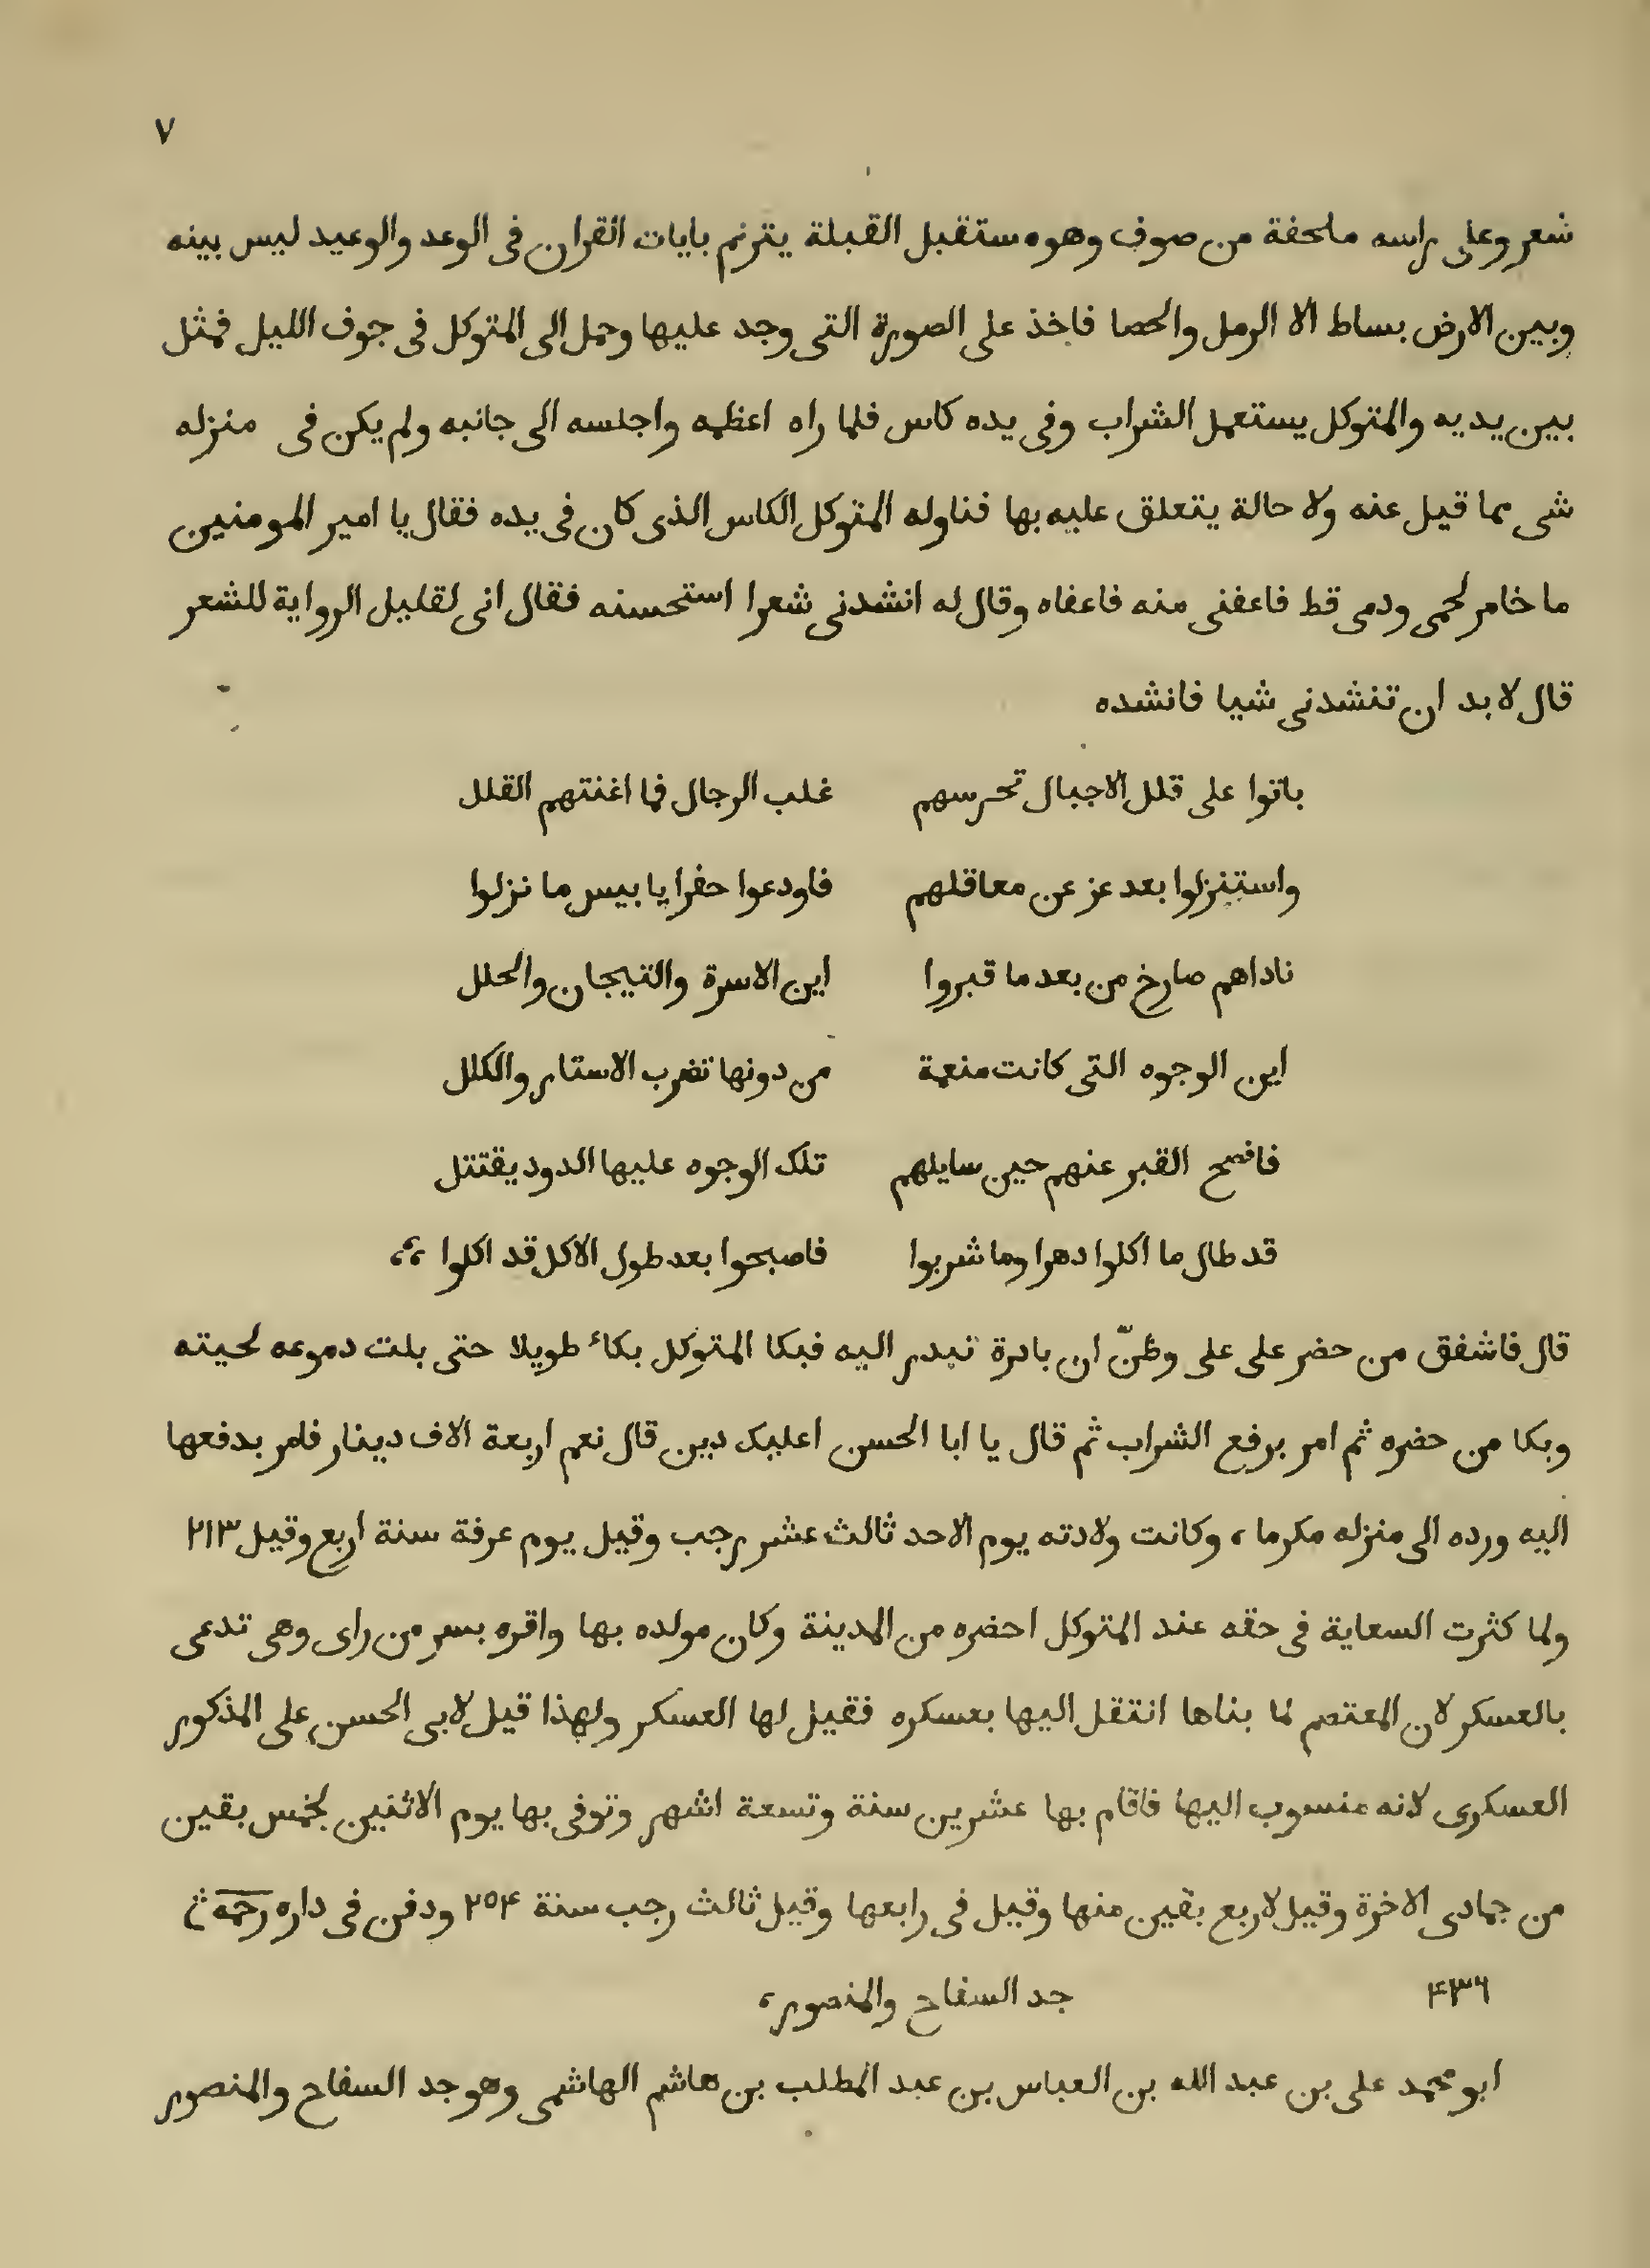 ٧
شعر وعلى راسه ملحفة من صوف وهو مستقبل القبلة يترنم بايات القران فى الوعد والوعيد ليس بينه
وبين الارض بساط الا الرمل والحصا فاخذ على الصورة التى وجد عليها وحمل الى المتوكل فى جوف الليل فمثل
بين يديه والمتوكل يستعمل الشراب وفى يده كاس فلما راه اعظمه واجلسه الى جانبه ولم يكن فى منزله
شى مما قيل عنه ولا حالة يتعلق عليه بها فناوله المتوكل الكاس الذى كان فى يده فقال يا امير المومنين
ما خامر لحمى ودمى قط فاعفنى منه فاعفاه وقال له انشدنى شعرا استحسنه فقال انى لقليل الرواية للشعر
قال لا بد ان تنشدنى شيا فانشده
باتوا على قلل الاجبال تحرسهم غلب الرجال فما اغنتهم القلل
واستنزلوا بعد عز عن معاقلهم فاودعوا حفرا يا بيس ما نزلوا
ناداهم صارخ من بعد ما قبروا اين الاسرة والتيجان والحلل
اين الوجوه التى كانت منعمة من دونها تضرب الاستار والكلل
فافصح القبر عنهم حين سايلهم تلك الوجوه عليها الدود يقتتل
قد طال ما اكلوا دهرا وما شربوا فاصبحوا بعد طول الاكل قد اكلوا ،،
قال فاشفق من حضر على على وظنّ ان بادرة تبدر اليه فبكا المتوكل بكاء طويلا حتى بلت دموعه لحيته
وبكا من حضره ثم امر برفع الشراب ثم قال يا ابا الحسن اعليك دين قال نعم اربعة الاف دينار فامر بدفعها
اليه ورده الى منزله مكرما ، وكانت ولادته يوم الاحد ثالث عشر رجب وقيل يوم عرفة سنة اربع وقيل ٢١٣
ولما كثرت السعاية فى حقه عند المتوكل احضره من المدينة وكان مولده بها واقره بسر من راى وهى تدعى
بالعسكر لان المعتصم لما بناها انتقل اليها بعسكره فقيل لها العسكر ولهذا قيل لابى الحسن على المذكور
العسكرى لانه منسوب اليها فاقام بها عشرين سنة وتسعة اشهر وتوفى بها يوم الاثنين لخمس بقين
من جمادى الاخرة وقيل لاربع بقين منها وقيل فى رابعها وقيل ثالث رجب سنة ٢٥۴ ودفن فى داره رحمه
۴٣٦ جد السفاح والمنصور ،
ابو محمد على بن عبد الله بن العباس بن عبد المطلب بن هاشم الهاشمى وهو جد السفاح والمنصور